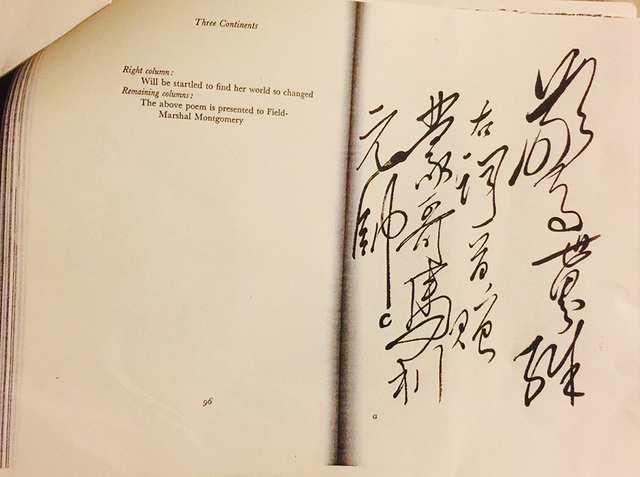 Three Continents
Right column:
Will be startled to find her world so changed
Remaining columns:
The above poem is presented to Field-
Marshal Montgomery
96
驚世界殊
右詞首贈
蒙哥馬利
元帥。
G